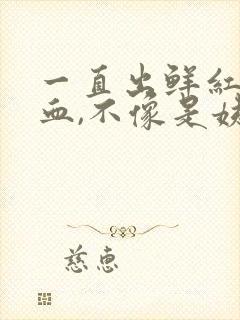 一直出鲜红
血,不像是姨
慈惠